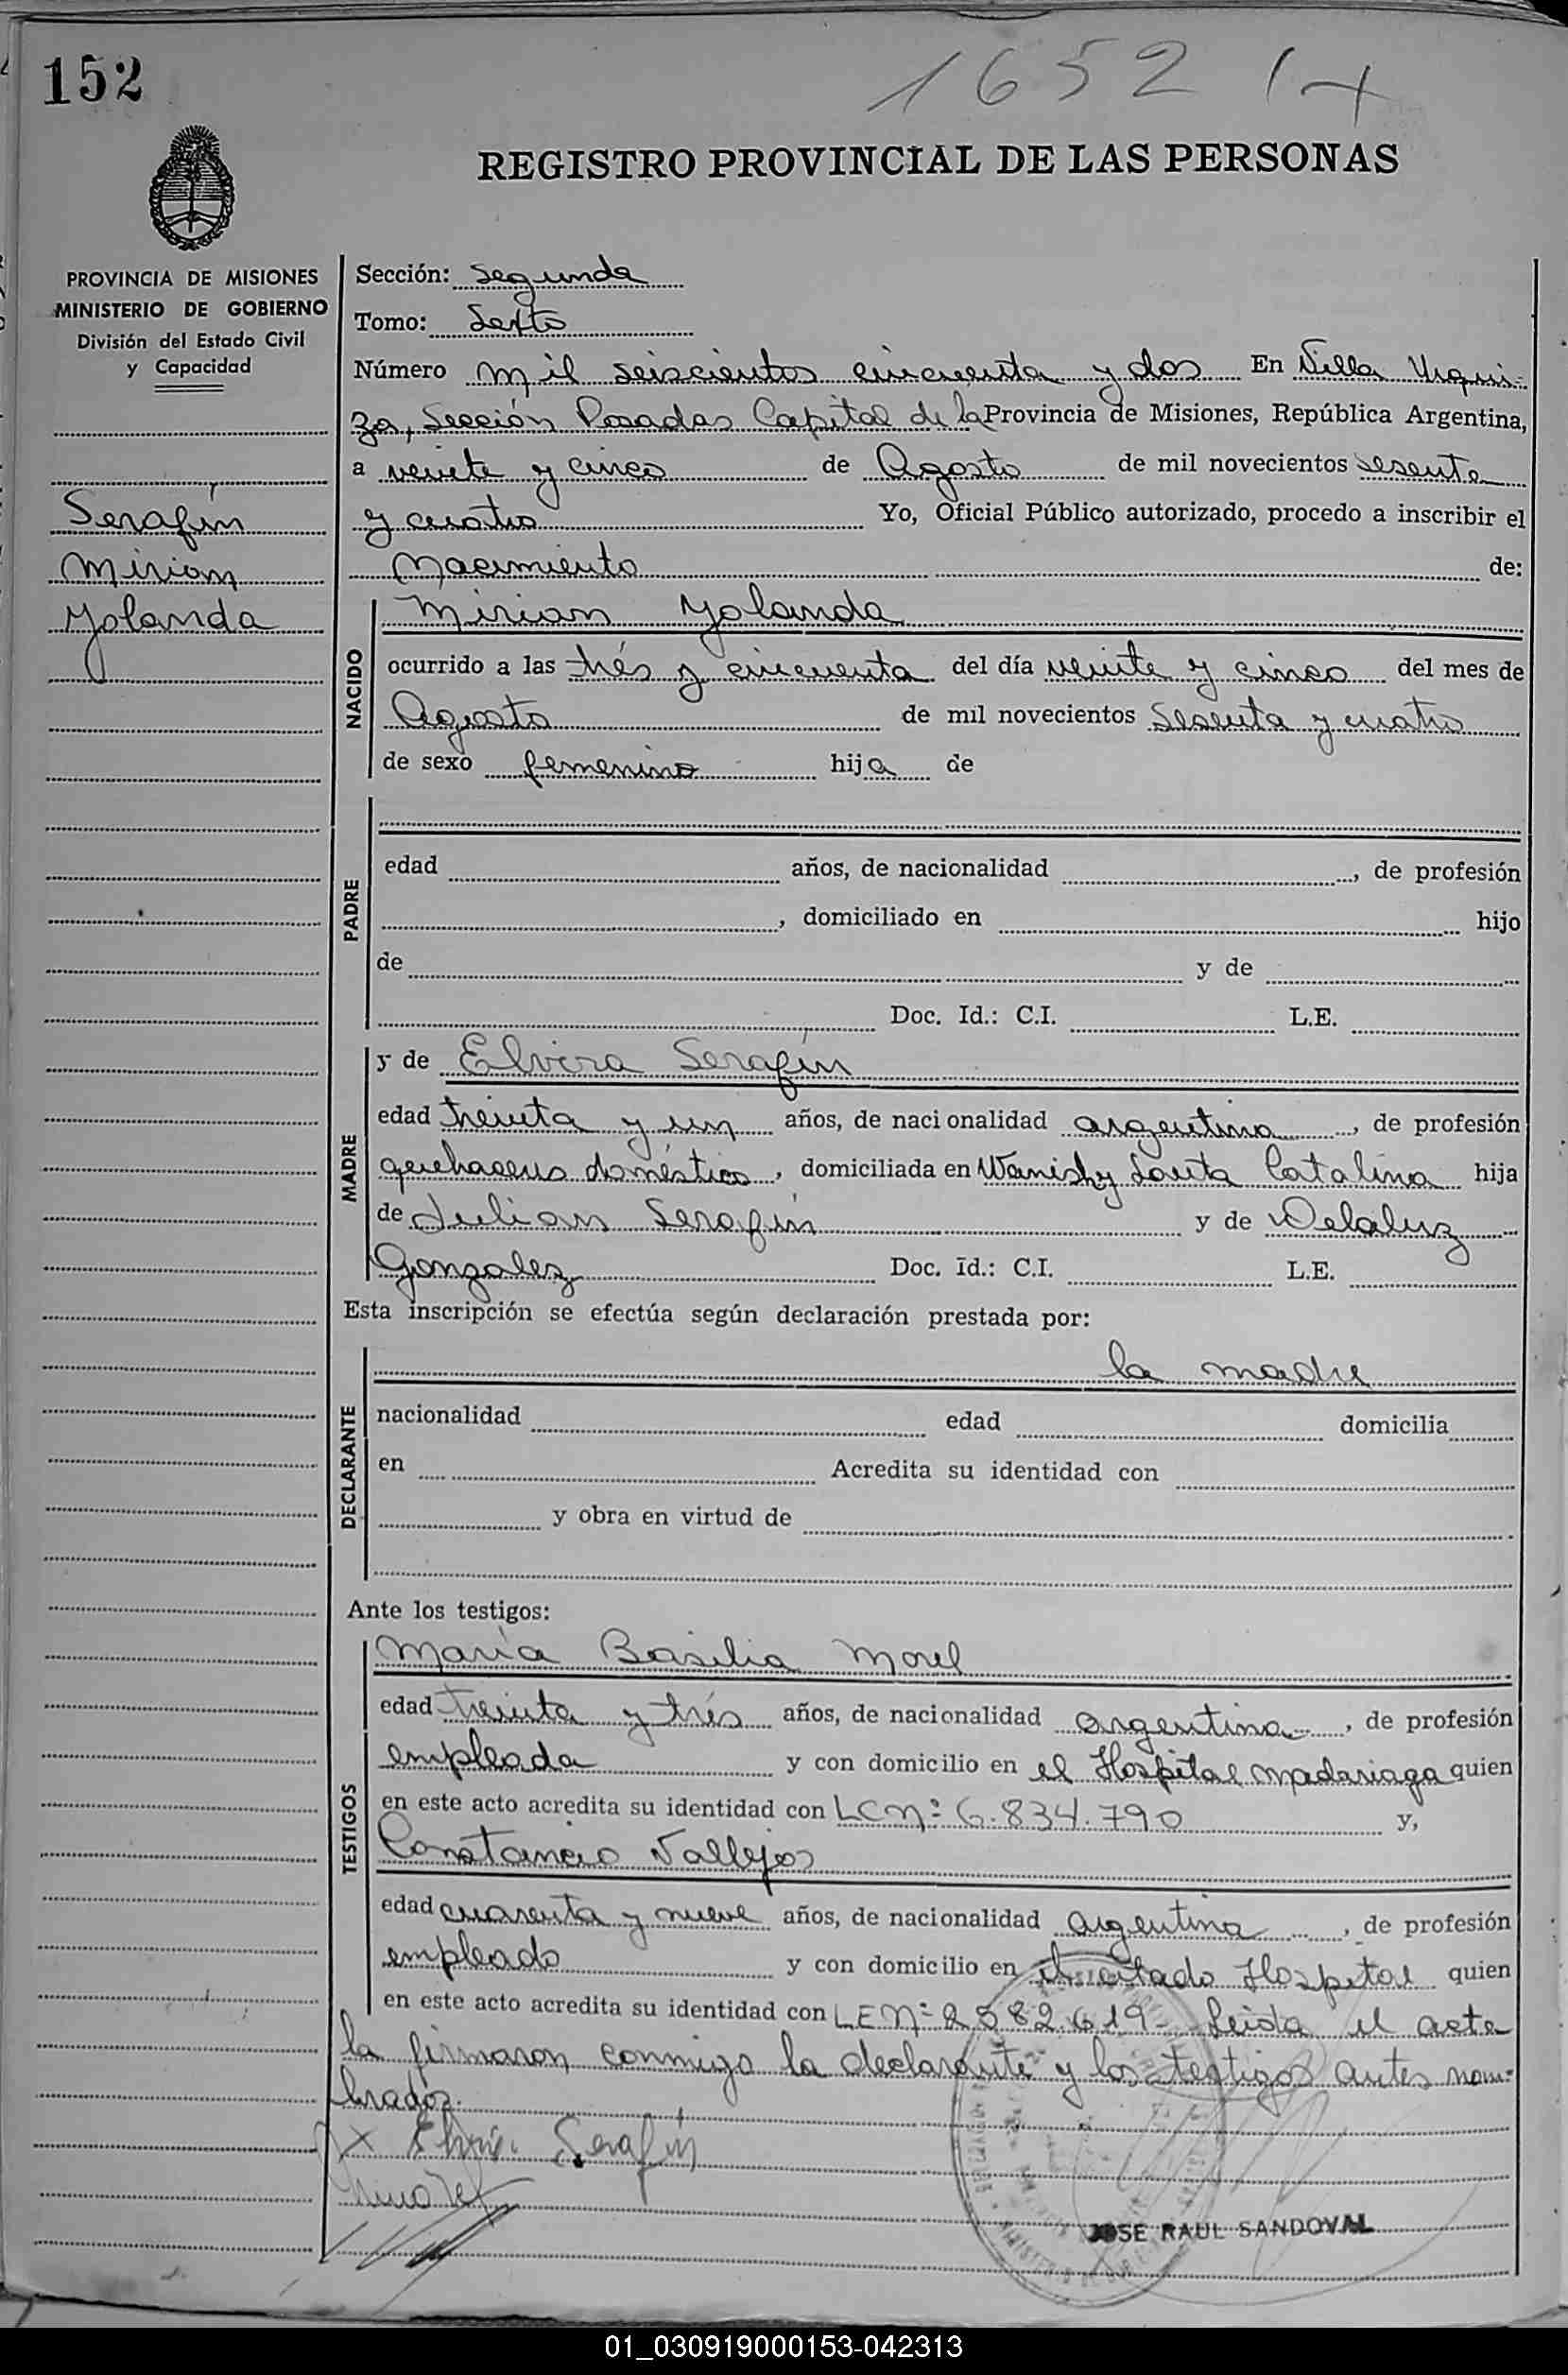 152
1652
REGISTRO PROVINCIAL DE LAS PERSONAS
PROVINCIA DE MISIONES
MINISTERIO DE GOBIERNO
División del Estado Civil
y Capacidad
Serafín
Miriam
Yolanda
Sección: Segunda
Tomo: Sexto
Número mil seiscientos cincuenta y dos En Villa Urqui-
za, Sección Posadas Capital de la Provincia de Misiones, República Argentina,
a veinte y cinco de Agosto de mil novecientos sesenta
y cuatro Yo, Oficial Público autorizado, procedo a inscribir el
Nacimiento de:
NACIDO
Mirian Yolanda
ocurrido a las trés y cincuenta del día veinte y cinco del mes de
Agosto de mil novecientos sesenta y cuatro
de sexo femenino hija de
PADRE
edad años, de nacionalidad , de profesión
, domiciliado en hijo
de y de
Doc. Id.: C.I. L.E.
MADRE
y de Elvira Serafín
edad treinta y un años, de nacionalidad argentina, de profesión
quehaceres doméstico, domiciliada en Wanisky Santa Catalina hija
de Julian Serafín y de Delaluz
Gonzalez Doc. Id.: C.I. L.E.
Esta inscripción se efectúa según declaración prestada por:
DECLARANTE
la madre
nacionalidad edad domicilia
en Acredita su identidad con
y obra en virtud de
Ante los testigos:
TESTIGOS
María Basilia Morel
edad treinta y trés años, de nacionalidad argentina, de profesión
empleada y con domicilio en el Hospital Madariaga quien
en este acto acredita su identidad con LCNº 6.834.790 y,
Constancio Vallejos
edad cuarenta y nueve años, de nacionalidad argentina, de profesión
empleado y con domicilio en el citado Hospital quien
en este acto acredita su identidad con LENº 2582.619- Leida el acta
la firmaron conmigo la declarante y los testigos antes nom-
brados.
x Elvira Serafín
JOSE RAUL SANDOVAL
01_030919000153-042313